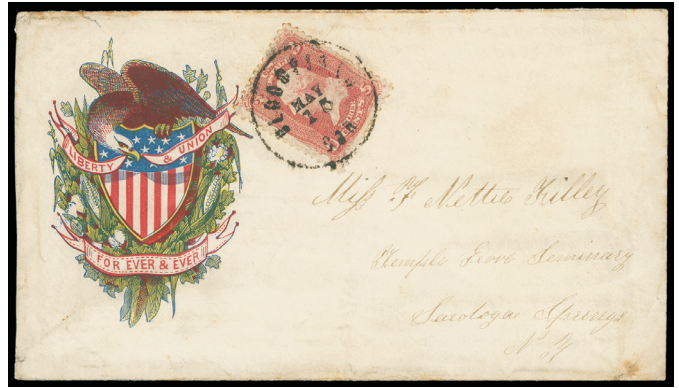 LIBERTY & UNION
FOR EVER & EVER
MAY
Miss F Nettie Killey
Temple Grove Seminary
Saratoga Springs
N Y